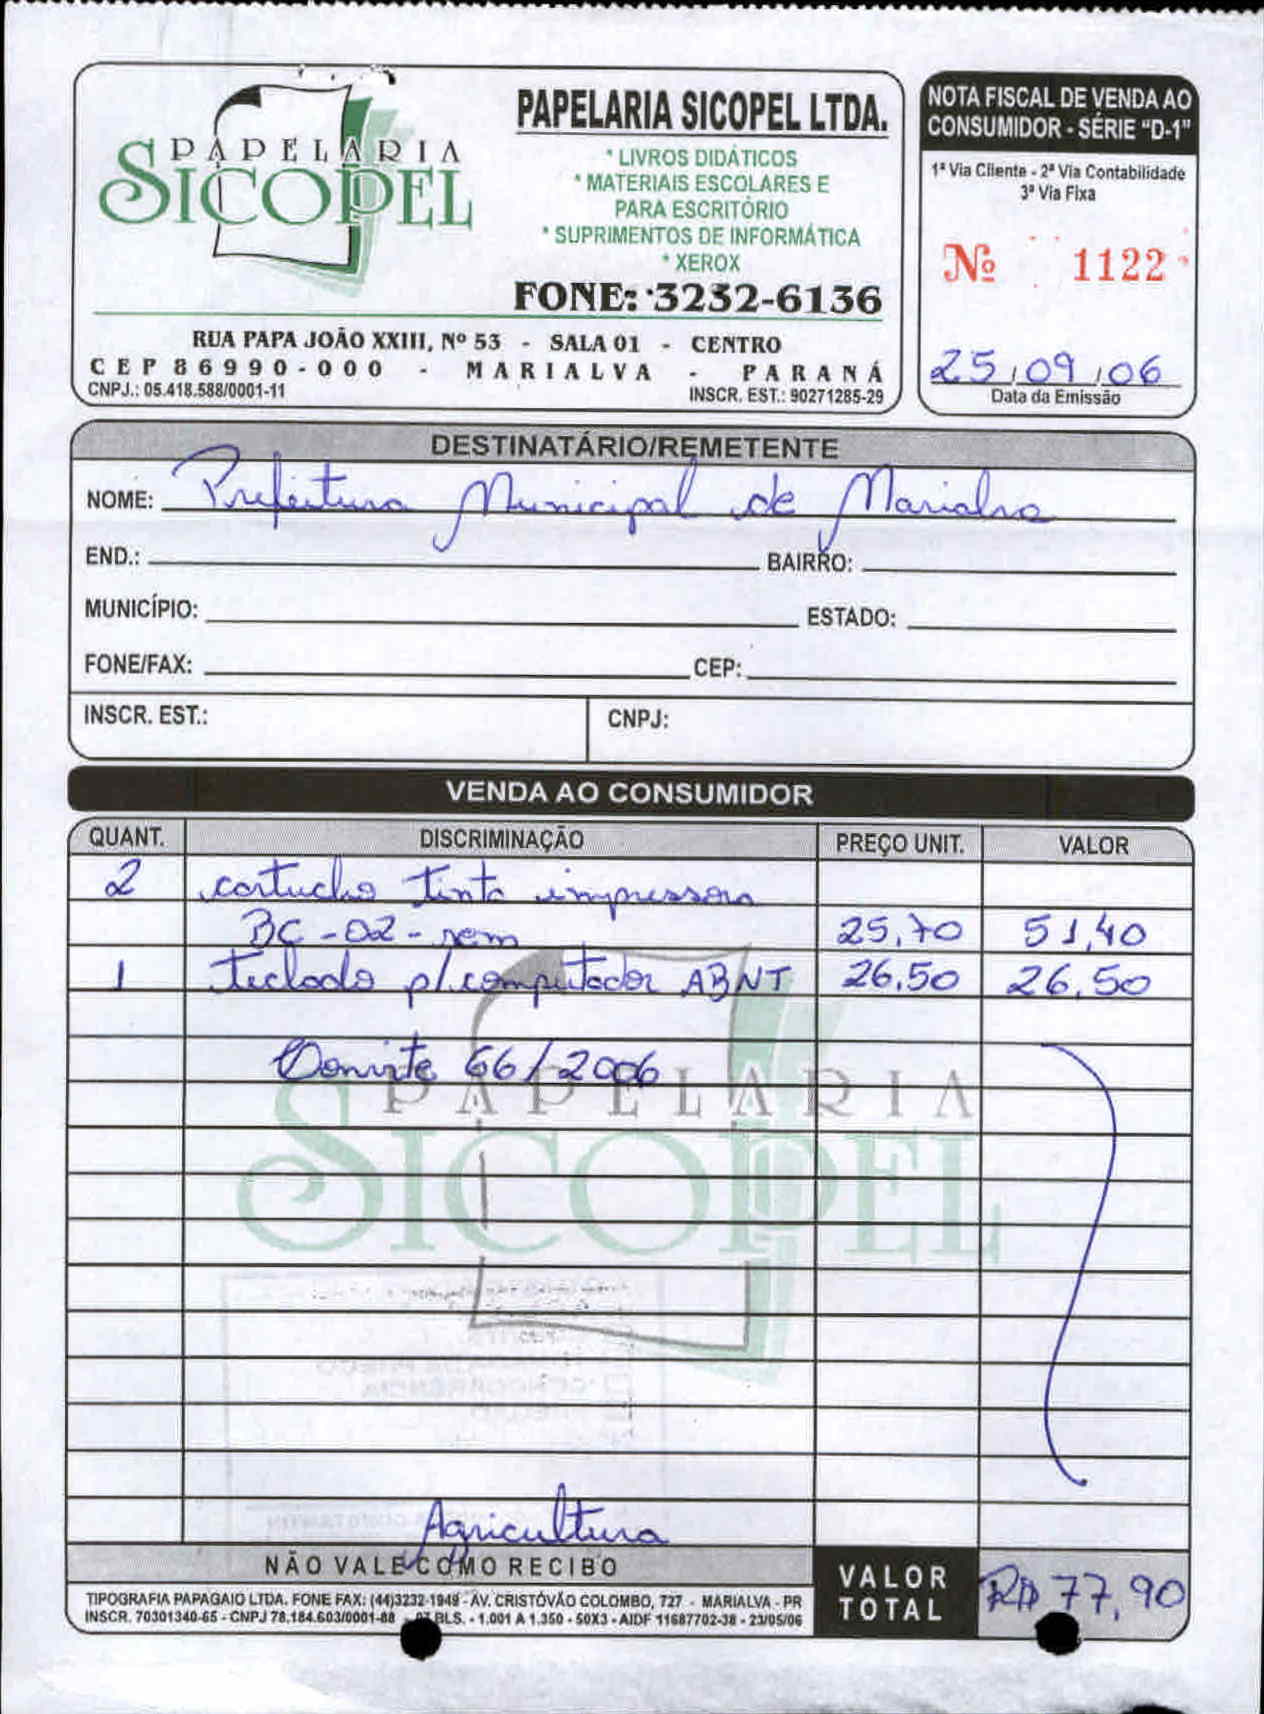 PAPELARIA
SICOPEL
PAPELARIA SICOPEL LTDA.
* LIVROS DIDÁTICOS
* MATERIAIS ESCOLARES E
PARA ESCRITÓRIO
* SUPRIMENTOS DE INFORMÁTICA
* XEROX
FONE: 3232-6136
RUA PAPA JOÃO XXIII, Nº 53 - SALA 01 - CENTRO
CEP 86990-000 - MARIALVA - PARANÁ
CNPJ.: 05.418.588/0001-11 INSCR. EST.: 90271285-29
NOTA FISCAL DE VENDA AO
CONSUMIDOR - SÉRIE "D-1"
1ª Via Cliente - 2ª Via Contabilidade
3ª Via Fixa
Nº 1122
25/09/06
Data da Emissão
DESTINATÁRIO/REMETENTE
NOME: Prefeitura Municipal de Marialva
END.: BAIRRO:
MUNICÍPIO: ESTADO:
FONE/FAX: CEP:
INSCR. EST.: CNPJ:
VENDA AO CONSUMIDOR
QUANT. DISCRIMINAÇÃO PREÇO UNIT. VALOR
2 cartucho tinta impressora
BC-02-rem 25,70 51,40
1 teclado p/computador ABNT 26,50 26,50
Convite 66/2006
PAPELARIA
SICOPEL
Agricultura
NÃO VALE COMO RECIBO
VALOR
TOTAL R$ 77,90
TIPOGRAFIA PAPAGAIO LTDA. FONE FAX: (44)3232-1949 - AV. CRISTÓVÃO COLOMBO, 727 - MARIALVA - PR
INSCR. 70301340-65 - CNPJ 78.184.603/0001-88 - 07 BLS. - 1.001 A 1.350 - 50X3 - AIDF 11687702-38 - 23/05/06